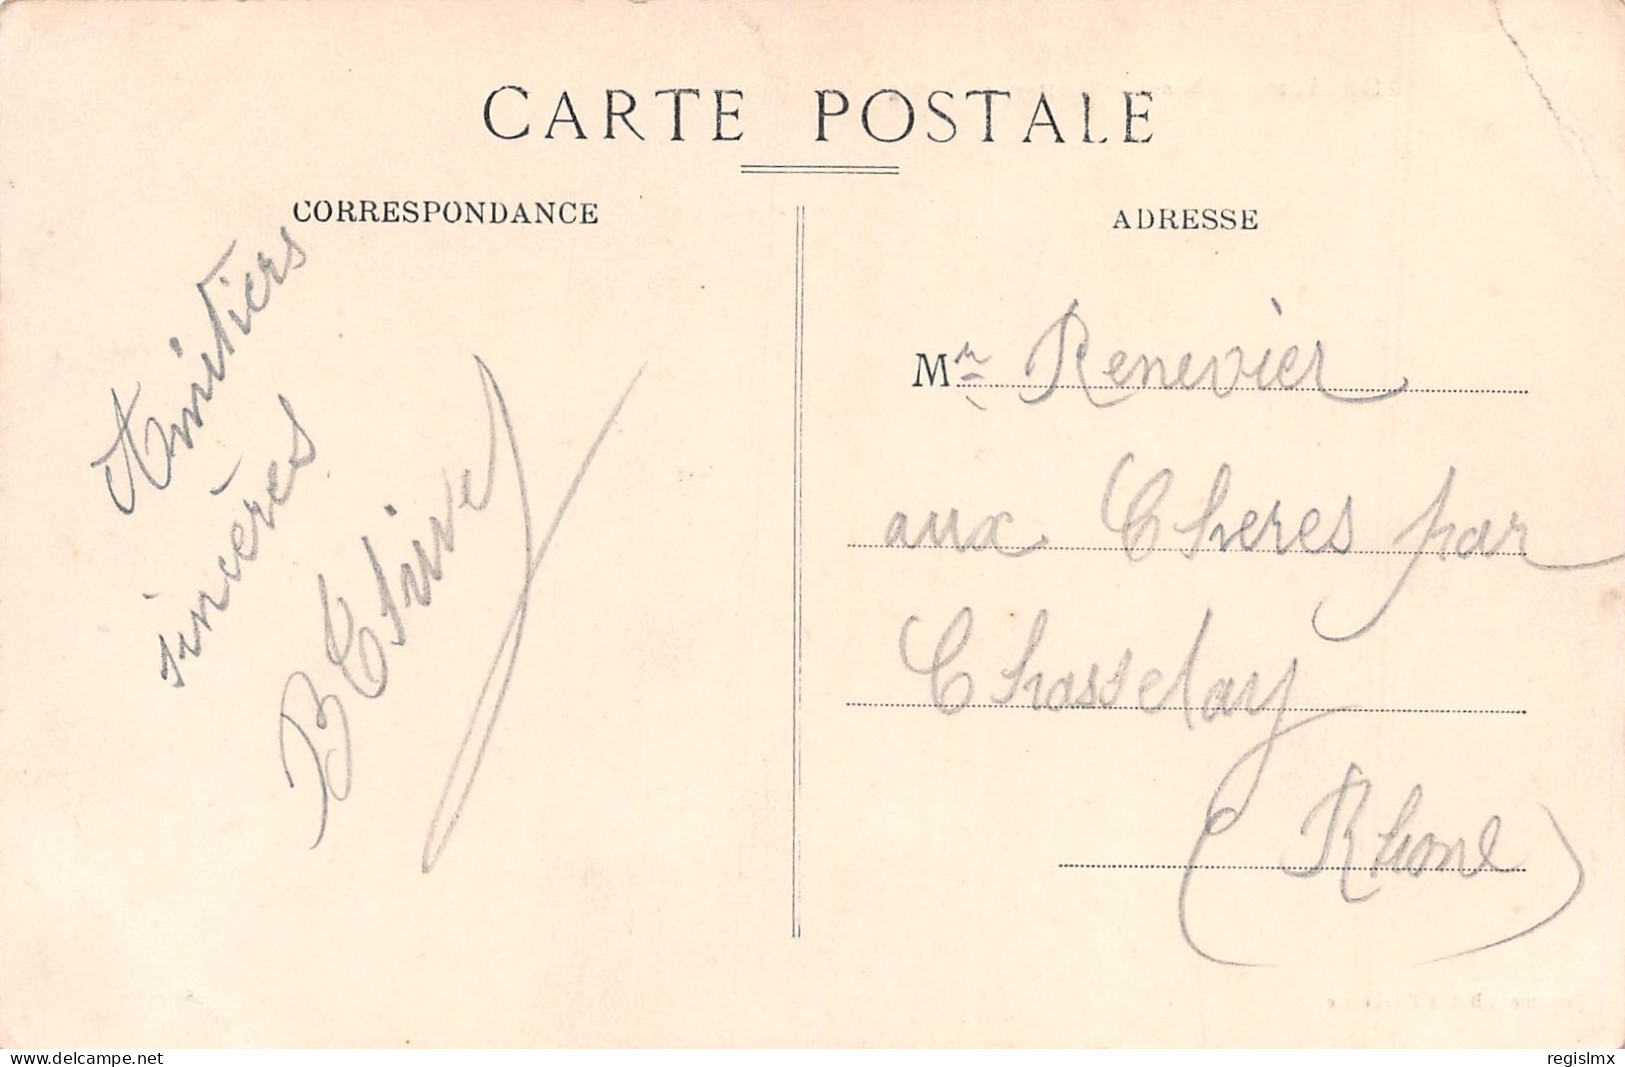 CARTE POSTALE
CORRESPONDANCE
ADRESSE
Amitiers
sincères
Mr Renevier
aux Chères par
Chasselay
(Rhone)
www.delcampe.net
regislmx